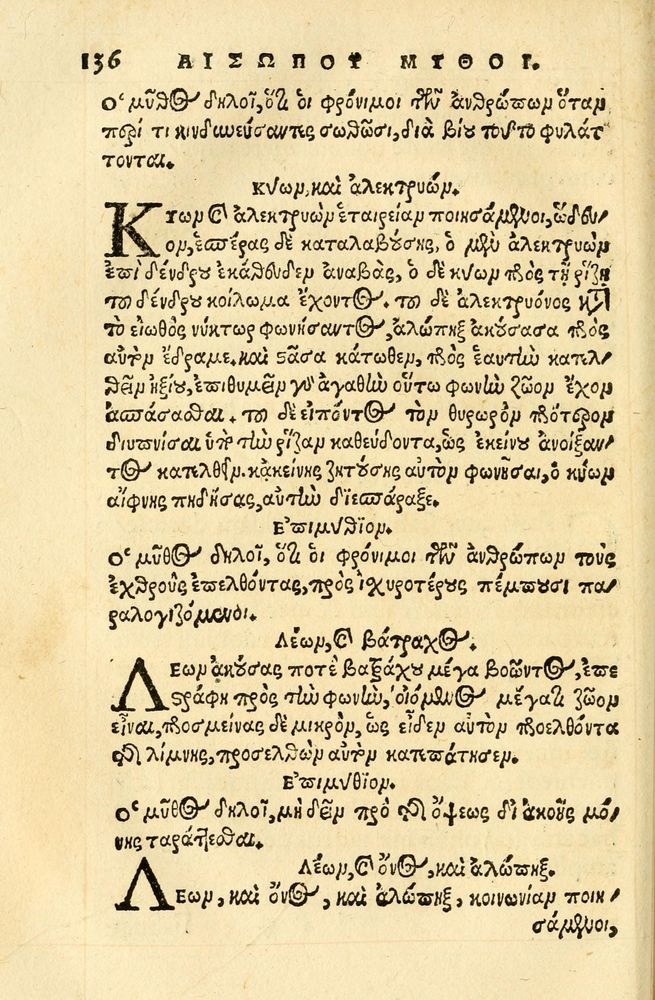 136 ΑΙΣΩΠΟΥ ΜΥΘΟΙ.
Ὁ μῦθος δηλοῖ, ὅτι οἱ φρόνιμοι τῶν ἀνθρώπων ὅταν
περί τι κινδυνεύσαντες σωθῶσι, διὰ βίου τοῦτο φυλάτ
τονται.
Κύων, καὶ ἀλεκτρυών.
Κύων καὶ ἀλεκτρυὼν ἑταιρείαν ποιησάμενοι, ὥδευ/
ον, ἑσπέρας δὲ καταλαβούσης, ὁ μὲν ἀλεκτρυὼν
ἐπὶ δένδρου ἐκάθευδεν ἀναβὰς, ὁ δὲ κύων πρὸς τῇ ῥίζῃ
τοῦ δένδρου κοίλωμα ἔχοντος. τοῦ δὲ ἀλεκτρυόνος κατὰ
τὸ εἰωθὸς νύκτωρ φωνήσαντος, ἀλώπηξ ἀκούσασα πρὸς
αὐτὸν ἔδραμε. καὶ στᾶσα κάτωθεν, πρὸς ἑαυτὴν κατελ/
θεῖν ἠξίου, ἐπιθυμεῖν γὰρ ἀγαθὴν οὕτω φωνὴν ζῶον ἔχον
ἀσπάσασθαι. τοῦ δὲ εἰπόντος τὸν θυρωρὸν πρότερον
διυπνίσαι ὑπὸ τὴν ῥίζαν καθεύδοντα, ὡς ἐκείνου ἀνοίξαν/
τος κατελθεῖν. κἀκείνης ζητούσης αὐτὸν φωνῆσαι, ὁ κύων
αἴφνης πηδήσας, αὐτὴν διεσπάραξε.
Ἐπιμύθιον.
Ὁ μῦθος δηλοῖ, ὅτι οἱ φρόνιμοι τῶν ἀνθρώπων τοὺς
ἐχθροὺς ἐπελθόντας, πρὸς ἰχυροτέρους πέμπουσι πα/
ραλογιζόμενοι.
Λέων, καὶ βάτραχος.
Λέων ἀκούσας ποτὲ βατράχου μέγα βοῶντος, ἐπε
στράφη πρὸς τὴν φωνὴν, οἰόμενος μέγα τι ζῶον
εἶναι, προσμείνας δὲ μικρὸν, ὡς εἶδεν αὐτὸν προελθόντα
τῆς λίμνης, προσελθὼν αὐτὸν κατεπάτησεν.
Ἐπιμύθιον.
Ὁ μῦθος δηλοῖ, μὴ δεῖν πρὸ τῆς ὄψεως δι' ἀκοῆς μό/
νης ταράττεσθαι.
Λέων, καὶ ὄνος, καὶ ἀλώπηξ.
Λέων, καὶ ὄνος, καὶ ἀλώπηξ, κοινωνίαν ποιη/
σάμενοι,